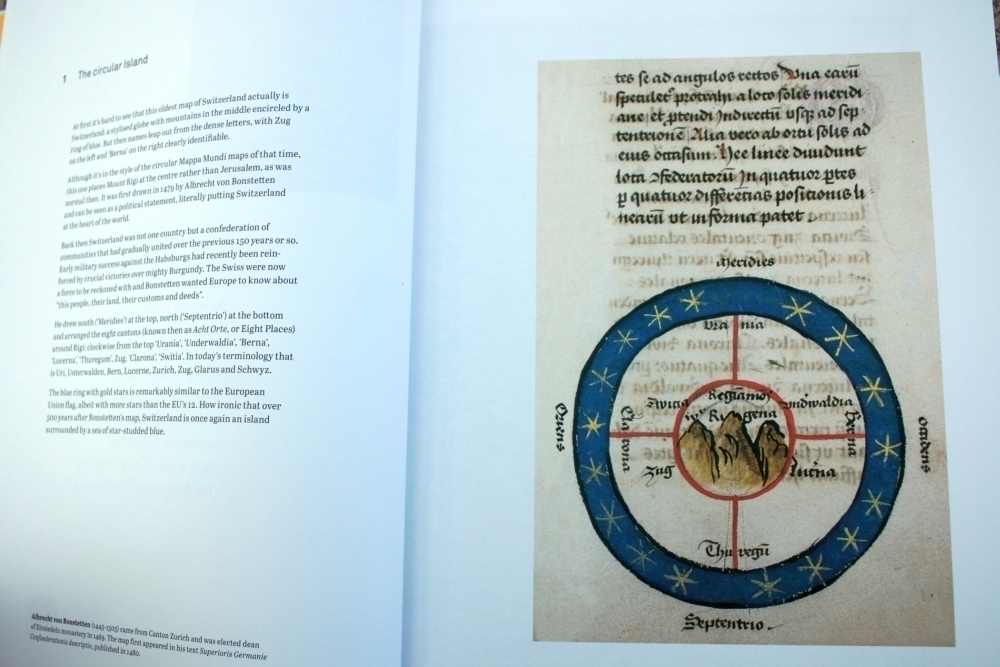 1 The circular Island
At first it's hard to see that this oldest map of Switzerland actually is
Switzerland: a stylised globe with mountains in the middle encircled by a
ring of blue. But then names leap out from the dense letters, with Zug
on the left and 'Berna' on the right clearly identifiable.
Although it's in the style of the circular Mappa Mundi maps of that time,
this one places Mount Rigi at the centre rather than Jerusalem, as was
normal then. It was first drawn in 1479 by Albrecht von Bonstetten
and can be seen as a political statement, literally putting Switzerland
at the heart of the world.
Back then Switzerland was not one country but a confederation of
communities that had gradually united over the previous 150 years or so.
Early military success against the Habsburgs had recently been rein-
forced by crucial victories over mighty Burgundy. The Swiss were now
a force to be reckoned with and Bonstetten wanted Europe to know about
"this people, their land, their customs and deeds".
He drew south ('Meridies') at the top, north ('Septentrio') at the bottom
and arranged the eight cantons (known then as Acht Orte, or Eight Places)
around Rigi: clockwise from the top 'Urania', 'Underwaldia', 'Berna',
'Lucerna', 'Thuregum', Zug, 'Clarona', 'Switia'. In today's terminology that
is Uri, Unterwalden, Bern, Lucerne, Zurich, Zug, Glarus and Schwyz.
The blue ring with gold stars is remarkably similar to the European
Union flag, albeit with more stars than the EU's 12. How ironic that over
500 years after Bonstetten's map, Switzerland is once again an island
surrounded by a sea of star-studded blue.
Albrecht von Bonstetten (1445-1505) came from Canton Zurich and was elected dean
of Einsiedeln monastery in 1469. The map first appeared in his text Superioris Germanie
Confederationis descriptio, published in 1480.
tes se ad angulos rectos Una earū
speculet protrahi a loco solis meridi
ane et ptendi Indirectū usqz ad sep
tentrionē Alia vero ab ortu solis ad
eius occasum. Hee linee diuidunt
loca 2federatorū In quatuor ptes
p quatuor differētias positionis li
nearū vt in forma patet .
Meridies
Vra nia
Switia
Regiamō
Vndwaldia
Ri gena
Oriens
Clarona
Berna
Occidens
Zug
Lucīna
Thuregū
Septentrio